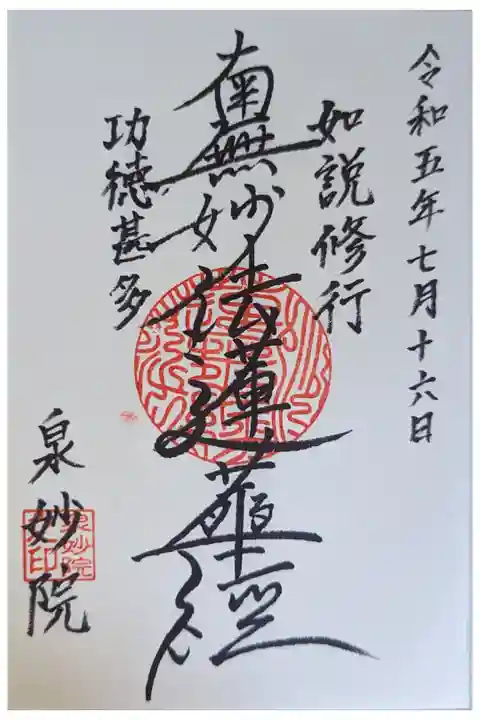 令和五年七月十六日
如説修行
南無妙法蓮華経
功徳甚多
泉妙院
泉妙院